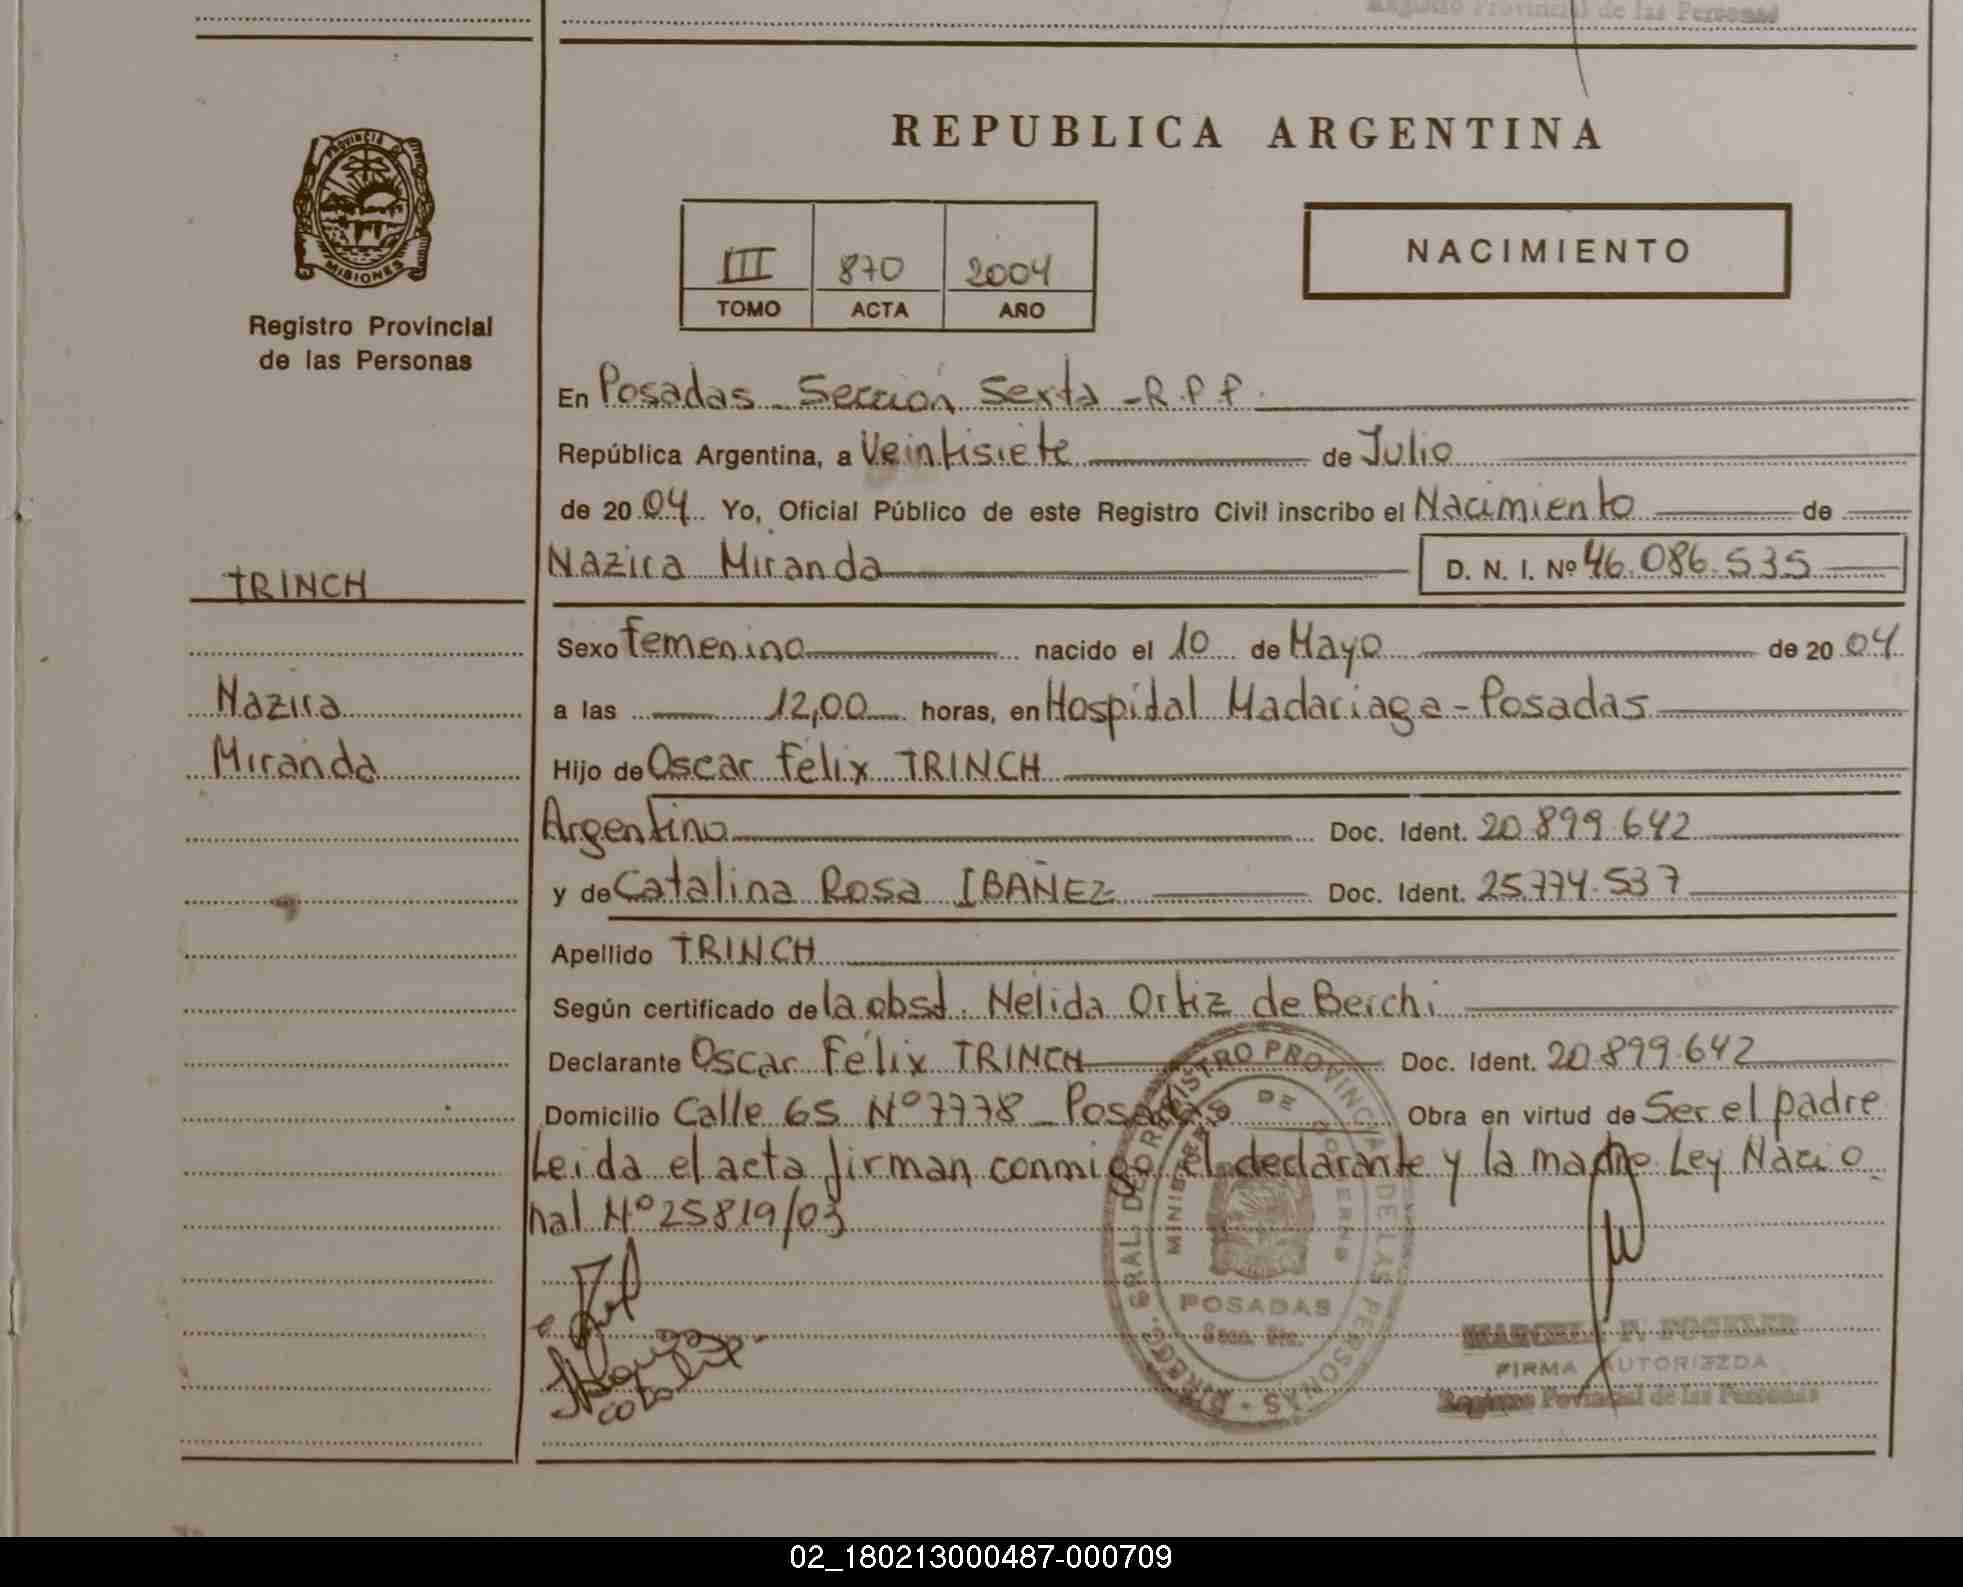 Registro Provincial de las Personas
PROVINCIA DE
MISIONES
Registro Provincial
de las Personas
REPUBLICA ARGENTINA
III 870 2004
TOMO ACTA AÑO
NACIMIENTO
En Posadas - Sección Sexta - R.P.P.
República Argentina, a Veintisiete de Julio
de 2004 Yo, Oficial Público de este Registro Civil inscribo el Nacimiento de
Nazira Miranda D. N. I. Nº 46.086.535
TRINCH
Sexo femenino nacido el 10 de Mayo de 2004
Nazira
a las 12,00 horas, en Hospital Madariaga - Posadas
Miranda
Hijo de Oscar Félix TRINCH
Argentino Doc. Ident. 20.899.642
y de Catalina Rosa IBAÑEZ Doc. Ident. 25.774.537
Apellido TRINCH
Según certificado de la obst. Nelida Ortiz de Berchi
Declarante Oscar Félix TRINCH Doc. Ident. 20.899.642
Domicilio Calle 65 Nº 7778 - Posadas Obra en virtud de Ser el padre
Leida el acta firman conmigo el declarante y la madre Ley Nacio
nal Nº 25819/03
DIRECC. GRAL. DEL REGISTRO PROVINCIAL DE LAS PERSONAS
MINISTERIO DE GOBIERNO
POSADAS
FIRMA AUTORIZZDA
Registro Povincial de las Personas
02_180213000487-000709